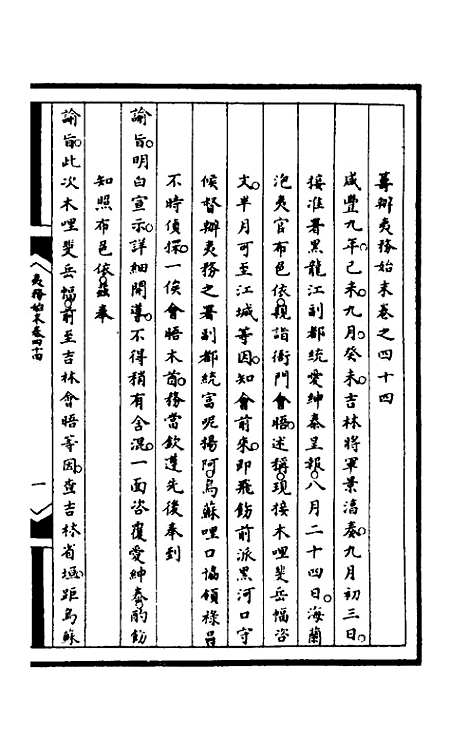 籌辦夷務始末卷之四十四
咸豐九年己未九月癸未。吉林將軍景淳奏。九月初三日。
接准署黑龍江副都統愛紳泰呈報。八月二十四日。海蘭
泡夷官布色依。親詣衙門會晤。述稱。現接木哩斐岳幅咨
文。半月可至江城等因。知會前來。即飛飭前派黑河口守
候督辦夷務之署副都統富呢揚阿。烏蘇哩口協領祿昌
不時偵探。一俟會晤木酋。務當欽遵先後奉到
諭旨。明白宣示。詳細開導。不得稍有含混。一面咨覆愛紳泰。酌飭
知照布色依。茲奉
諭旨。此次木哩斐岳幅。前至吉林會晤等因。查吉林省垣。距烏蘇
夷務始末卷四十四
一